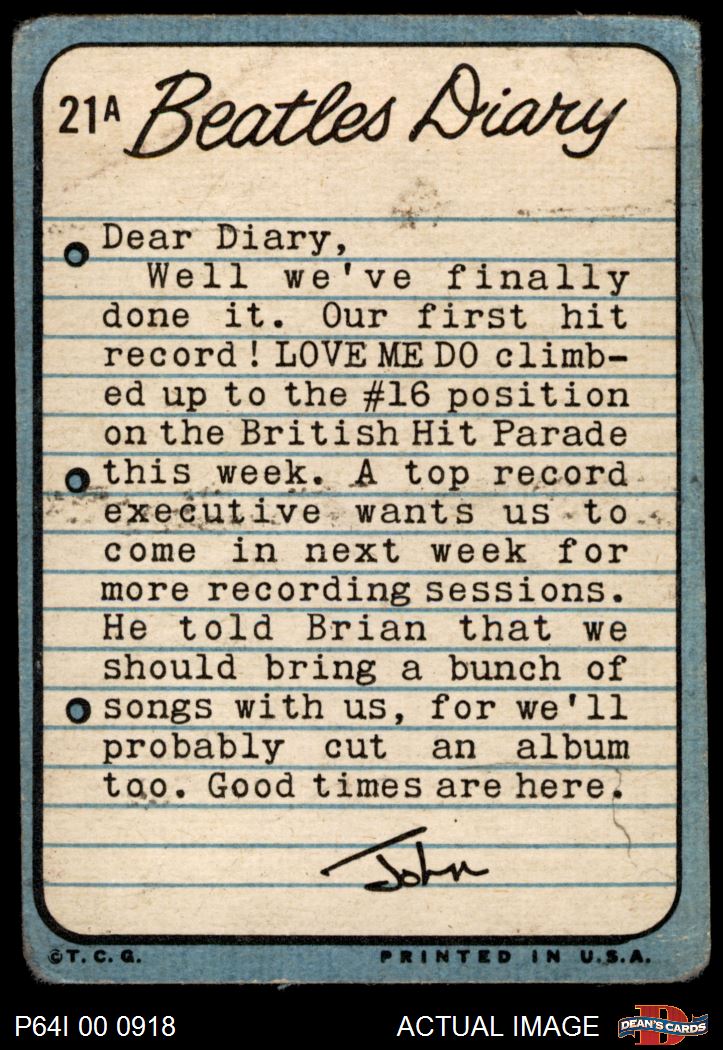 21A Beatles Diary
Dear Diary,
Well we've finally
done it. Our first hit
record! LOVE ME DO climb-
ed up to the #16 position
on the British Hit Parade
this week. A top record
executive wants us to
come in next week for
more recording sessions.
He told Brian that we
should bring a bunch of
songs with us, for we'll
probably cut an album
too. Good times are here.
John
©T.C.G. PRINTED IN U.S.A.
P64I 00 0918 ACTUAL IMAGE D DEAN'S CARDS